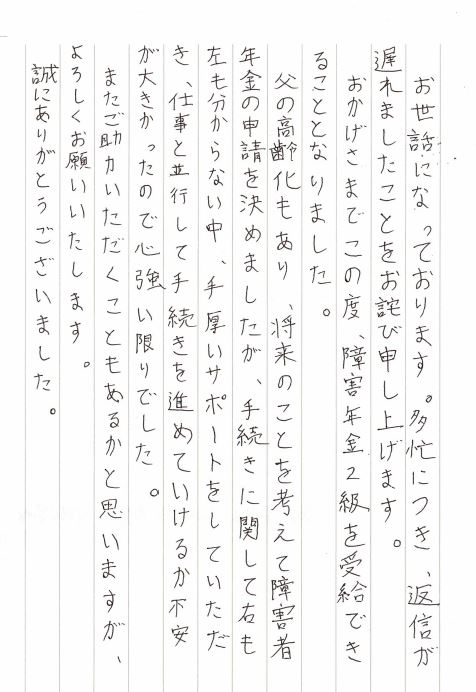 お世話になっております。多忙につき、返信が
遅れましたことをお詫び申し上げます。
おかげさまでこの度、障害年金2級を受給でき
ることとなりました。
父の高齢化もあり、将来のことを考えて障害者
年金の申請を決めましたが、手続きに関して右も
左も分からない中、手厚いサポートをしていただ
き、仕事と並行して手続きを進めていけるか不安
が大きかったので心強い限りでした。
またご助力いただくこともあるかと思いますが、
よろしくお願いいたします。
誠にありがとうございました。